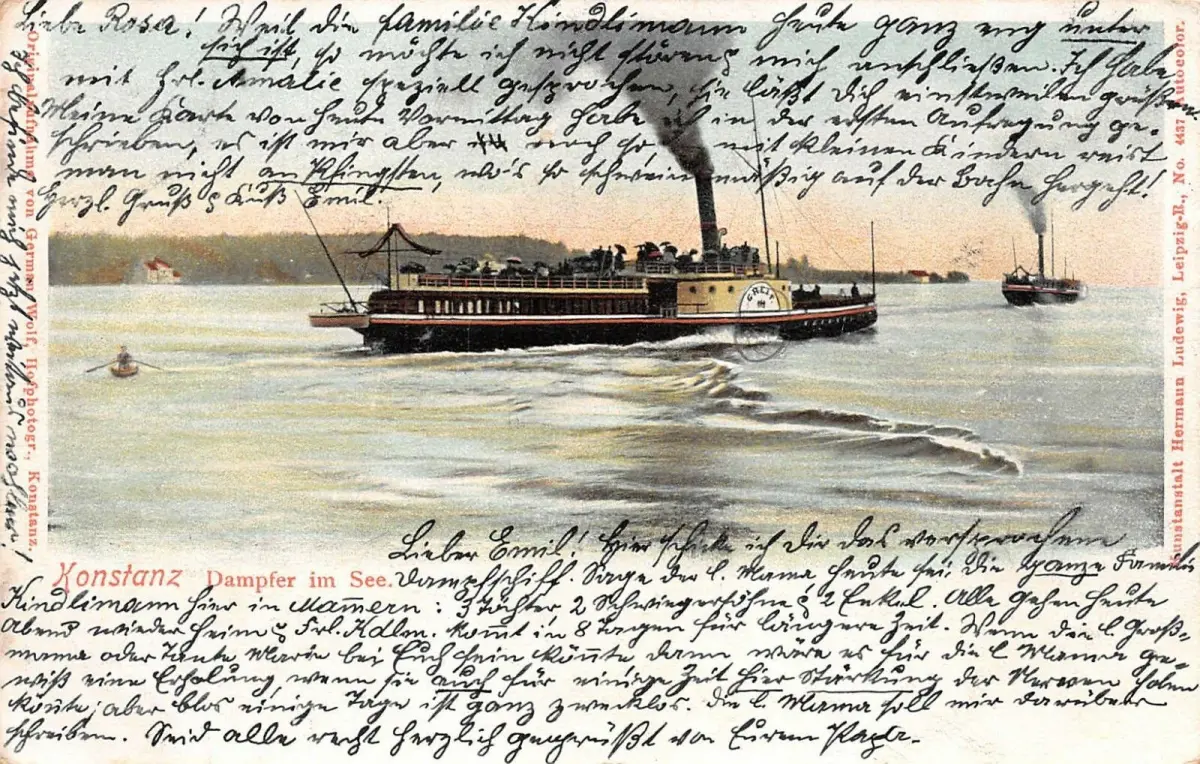 Liebe Rosa! Weil die Familie Kindlimann heute ganz eng unter
sich ist, so möchte ich nicht stören & mich anschließen. Ich habe
mit Frl. Amalie speziell gesprochen, sie läßt Dich einstweilen grüßen
Meine Karte von heute Vormittag habe ich in der ersten Aufregung ge-
schrieben, es ist mir aber noch so mit kleinen Kindern reist
man nicht an Pfingsten, wo's so schweinemäßig auf der Bahn hergeht!
Herzl. Gruß & Kuß Emil.
Originalaufnahme von German Wolf, Hofphotogr., Konstanz.
GREIF
Kunstanstalt Hermann Ludewig, Leipzig-R., No. 4437 Autocolor.
Konstanz Dampfer im See.
Lieber Emil! Hier schicke ich dir das versprochene
Dampfschiff. Sage der l. Mama heute sei die ganze Familie
Kindlimann hier in Mammern: 3 Töchter 2 Schwiegersöhne & 2 Enkel. Alle gehen heute
Abend wieder heim & Frl. Kdlm. kommt in 8 Tagen für längere Zeit. Wenn die l. Groß-
mama oder Tante Marie bei Euch sein könnte dann wäre es für die l Mama ge-
wiß eine Erholung wenn sie auch für einige Zeit hier Stärkung der Nerven holen
könnte; aber blos einige Tage ist ganz zwecklos. Die l. Mama soll mir darüber
schreiben. Seid alle recht herzlich gegrüßt von Eurem Papa.